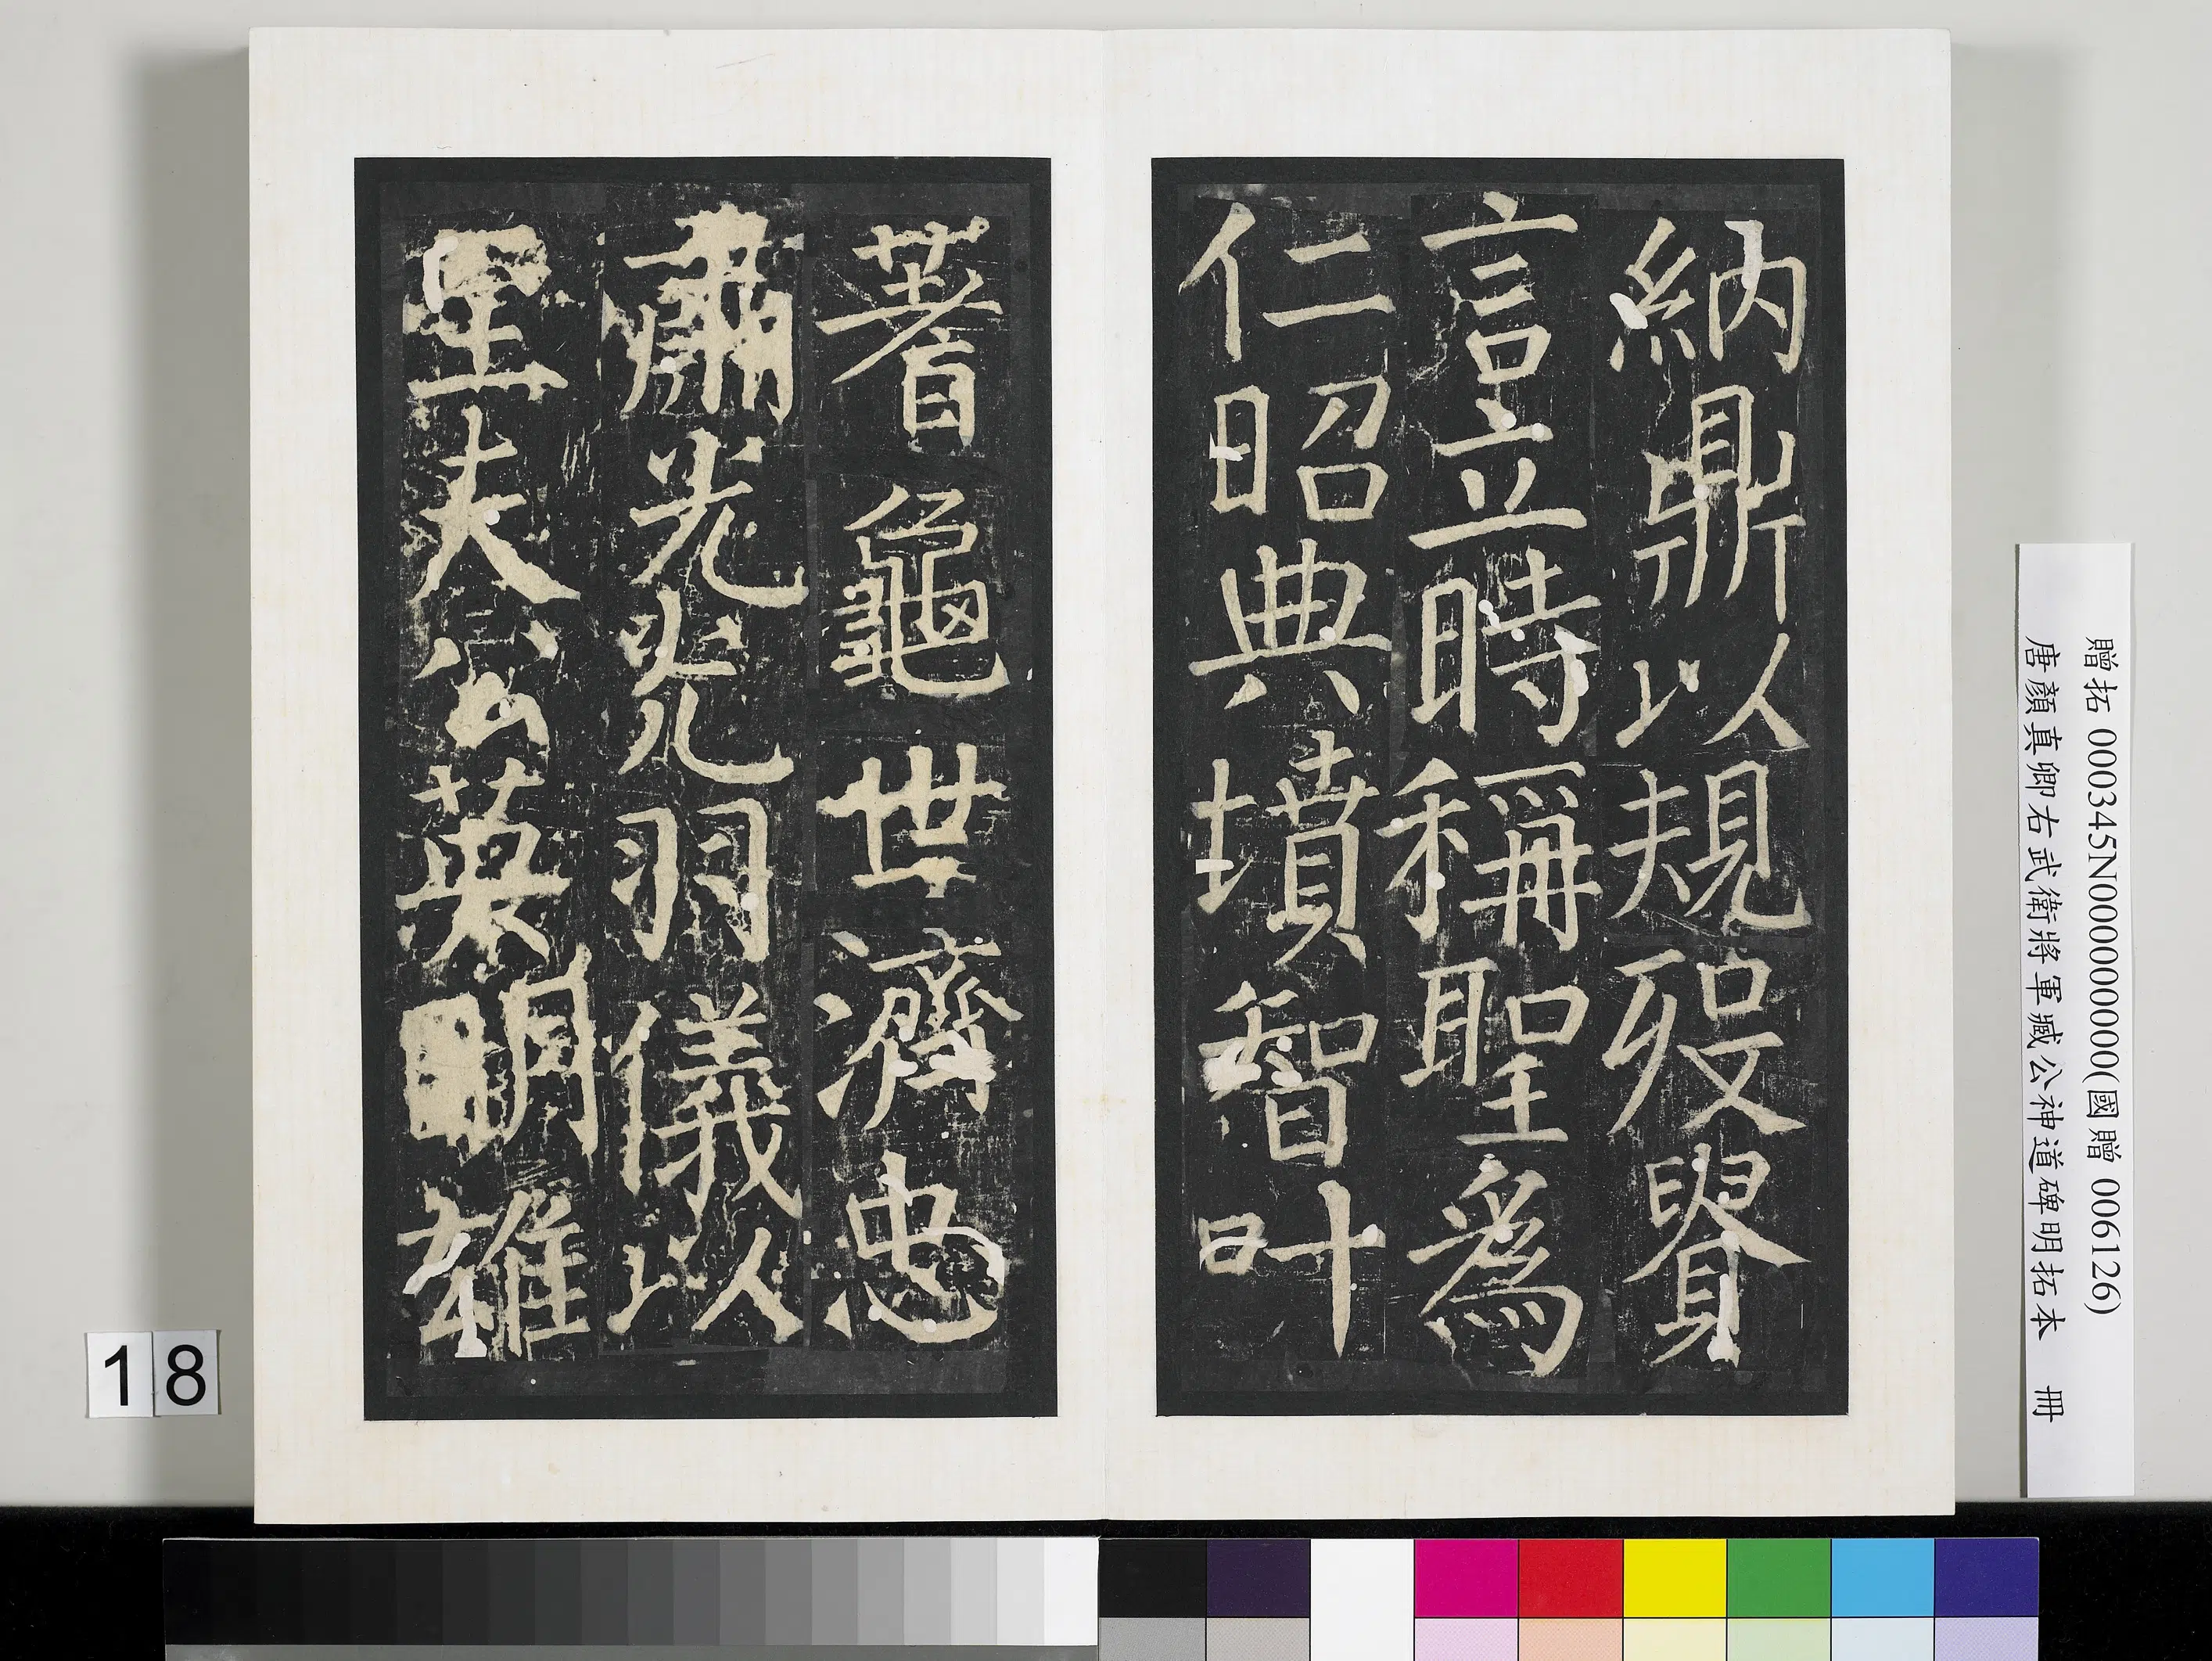 納鼎以規歿賢
言立時稱聖為
仁昭典墳智叶
蓍龜世濟忠
肅光光羽儀以
夫公英明雄
贈拓 000345N000000000(國贈 006126)
唐顏真卿右武衛將軍臧公神道碑明拓本 冊
18